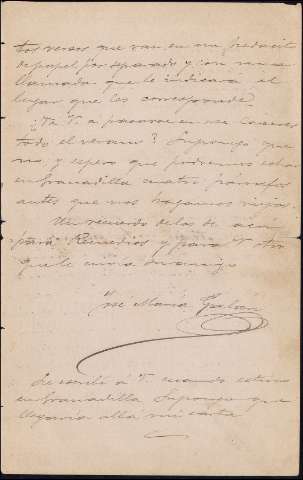 tos versos que van en un pedacito
de papel por separado y con una
llamada que le indicará el
lugar que les corresponde.
¿Va V. á pasarse en Cáceres
todo el verano? Supongo que
no, y espero que podremos echar
en Granadilla cuatro párrafos
antes que nos hagamos viejos.
Un recuerdo de los de acá
para Remedios y para V. otro
que le envia su amigo
José María Gabriel
Le escribí á V. cuando estuvo
en Granadilla. Supongo que
llegaría allá mi carta